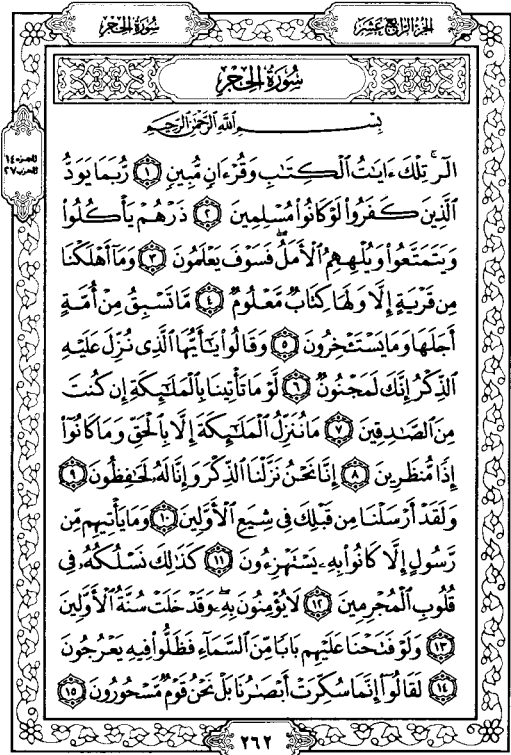 سُورَةُ الحِجْر
الجزء الرابع عشر
سُورَةُ الحِجْر
بِسْمِ اللَّهِ الرَّحْمَٰنِ الرَّحِيمِ
الجزء ١٤
الحزب ٢٧
الٓر ۚ تِلْكَ ءَايَٰتُ ٱلْكِتَٰبِ وَقُرْءَانٍ مُّبِينٍ ١ رُّبَمَا يَوَدُّ
ٱلَّذِينَ كَفَرُوا۟ لَوْ كَانُوا۟ مُسْلِمِينَ ٢ ذَرْهُمْ يَأْكُلُوا۟
وَيَتَمَتَّعُوا۟ وَيُلْهِهِمُ ٱلْأَمَلُ ۖ فَسَوْفَ يَعْلَمُونَ ٣ وَمَآ أَهْلَكْنَا
مِن قَرْيَةٍ إِلَّا وَلَهَا كِتَابٌ مَّعْلُومٌ ٤ مَّا تَسْبِقُ مِنْ أُمَّةٍ
أَجَلَهَا وَمَا يَسْتَـْٔخِرُونَ ٥ وَقَالُوا۟ يَٰٓأَيُّهَا ٱلَّذِى نُزِّلَ عَلَيْهِ
ٱلذِّكْرُ إِنَّكَ لَمَجْنُونٌ ٦ لَّوْ مَا تَأْتِينَا بِٱلْمَلَٰٓئِكَةِ إِن كُنتَ
مِنَ ٱلصَّٰدِقِينَ ٧ مَا نُنَزِّلُ ٱلْمَلَٰٓئِكَةَ إِلَّا بِٱلْحَقِّ وَمَا كَانُوٓا۟
إِذًا مُّنظَرِينَ ٨ إِنَّا نَحْنُ نَزَّلْنَا ٱلذِّكْرَ وَإِنَّا لَهُۥ لَحَٰفِظُونَ ٩
وَلَقَدْ أَرْسَلْنَا مِن قَبْلِكَ فِى شِيَعِ ٱلْأَوَّلِينَ ١٠ وَمَا يَأْتِيهِم مِّن
رَّسُولٍ إِلَّا كَانُوا۟ بِهِۦ يَسْتَهْزِءُونَ ١١ كَذَٰلِكَ نَسْلُكُهُۥ فِى
قُلُوبِ ٱلْمُجْرِمِينَ ١٢ لَا يُؤْمِنُونَ بِهِۦ ۖ وَقَدْ خَلَتْ سُنَّةُ ٱلْأَوَّلِينَ
١٣ وَلَوْ فَتَحْنَا عَلَيْهِم بَابًا مِّنَ ٱلسَّمَآءِ فَظَلُّوا۟ فِيهِ يَعْرُجُونَ
١٤ لَقَالُوٓا۟ إِنَّمَا سُكِّرَتْ أَبْصَٰرُنَا بَلْ نَحْنُ قَوْمٌ مَّسْحُورُونَ ١٥
٢٦٢